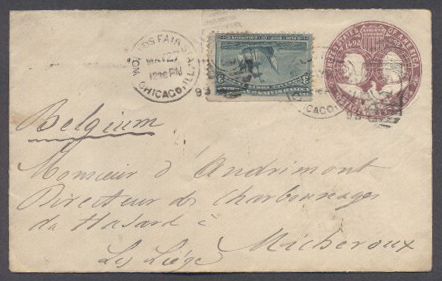 WORLDS FAIR STA.
CHICAGO, ILL.
93
UNITED STATES OF AMERICA
1492
CHICAGO
93
Belgium
Monsieur d'Andrimont
Directeur des Charbonnages
du Hasard à
Micheroux
Les Liége